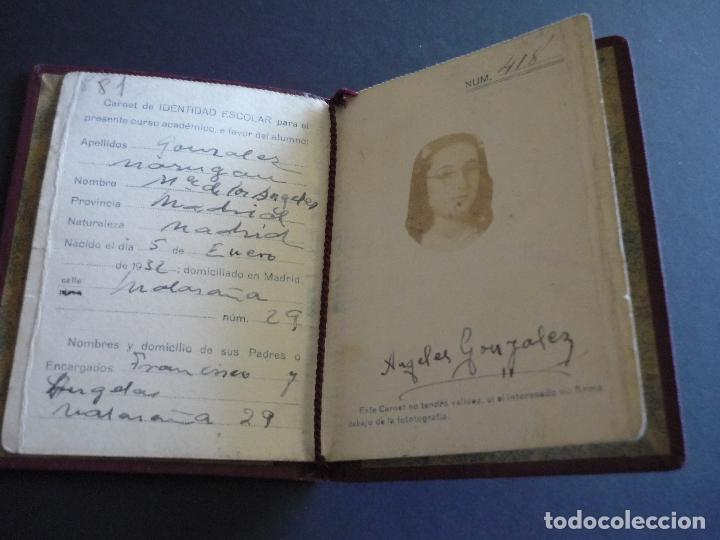 881
Carnet de IDENTIDAD ESCOLAR para el
presente curso académico, a favor del alumno:
Apellidos Gonzalez
Marugan
Nombre Mª de los Angeles
Provincia Madrid
Naturaleza Madrid
Nacido el día 5 de Enero
de 1932; domiciliado en Madrid,
calle Malasaña
núm. 29
Nombres y domicilio de sus Padres o
Encargados Francisco y
Angeles
Malasaña 29
NUM. 418
Angeles Gonzalez
Este Carnet no tendrá validez, si el interesado no firma
debajo de la fotografía.
todocoleccion.net